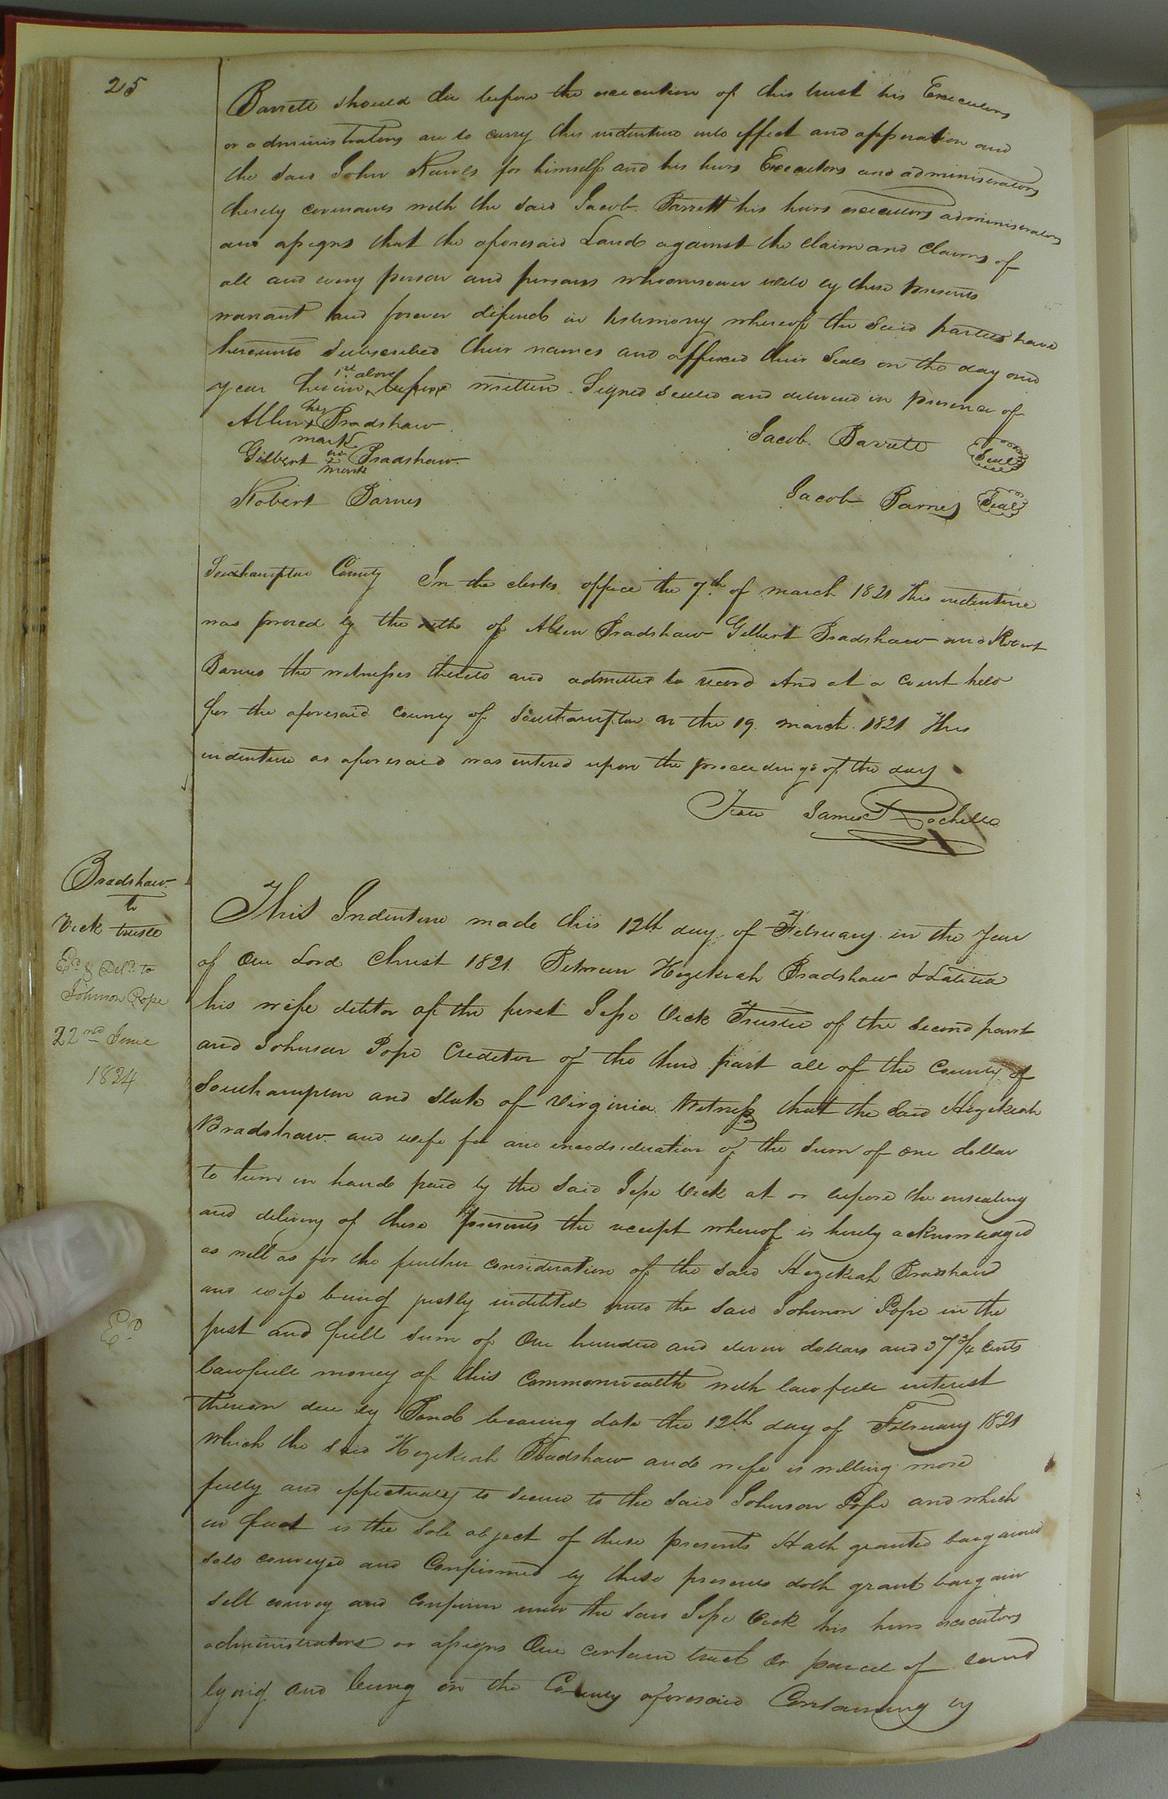 25
Barrett should die before the execution of this trust his Executors
or administrators are to carry this indenture into effect and opperation and
the said John for himself and his heirs Executors and administrators
thereby covenants with the said Jacob Barrett his heirs executors administrators
and assigns that the aforesaid Land against the claim and claims of
all and every person and persons whomsoever will by these presents
warrant and forever defend in testimony whereof the said parties have
hereunto subscribed their names and affixed their seals on the day and
year herein 1st above before written. Signed sealed and delivered in presence of
Allen his x mark Bradshaw
Gilbert mark Bradshaw
Robert Barnes
Jacob Barrett Seal
Jacob Barnes Seal
Southampton County In the clerks office the 7th of march 1821 This indenture
was proved by the oaths of Allen Bradshaw Gilbert Bradshaw and Robert
Barnes the witnesses thereto and admitted to record And at a Court held
for the aforesaid county of Southampton on the 19 march 1821 This
indenture as aforesaid was entered upon the proceedings of the day
Teste James Rochelle
Bradshaw
to
Vick trustee
Ed & Deld to
Johnson Pope
22nd June
1824
This Indenture made this 12th day of February in the Year
of Our Lord Christ 1821 Between Hezekiah Bradshaw & Latitia
his wife debtor of the first Jesse Vick Trustee of the Second part
and Johnson Pope Creditor of the third part all of the County of
Southampton and State of Virginia Witness that the Said Hezekiah
Bradshaw and wife for and inconsideration of the Sum of one dollar
to them in hand paid by the said Jesse Vick at or before the ensealing
and delivery of these presents the receipt whereof is hereby acknowledged
as well as for the further consideration of the said Hezekiah Bradshaw
and wife being justly indebted unto the said Johnson Pope in the
just and full sum of One hundred and eleven dollars and 37 3/4 cents
lawfull money of this Commonwealth with lawfull interest
thereon due by Bond bearing date the 12th day of February 1821
which the said Hezekiah Bradshaw and wife is willing more
fully and effectually to secure to the said Johnson Pope and which
in fact is the sole object of these presents Hath granted bargained
sold conveyed and Confirmed by these presents doth grant bargain
sell convey and confirm unto the said Jesse Vick his heirs executors
administrators or assigns One certain tract or parcel of land
lying and being in the County aforesaid Containing by
Ed